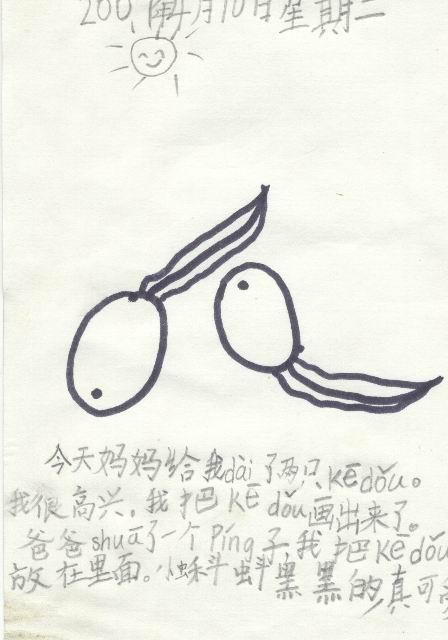 200 年4月10日星期二
今天妈妈给我dài了两只kē dǒu。
我很高兴,我把kē dǒu画出来了。
爸爸shuā了一个píng子,我把kē dǒu
放在里面。蝌蚪黑黑的真可